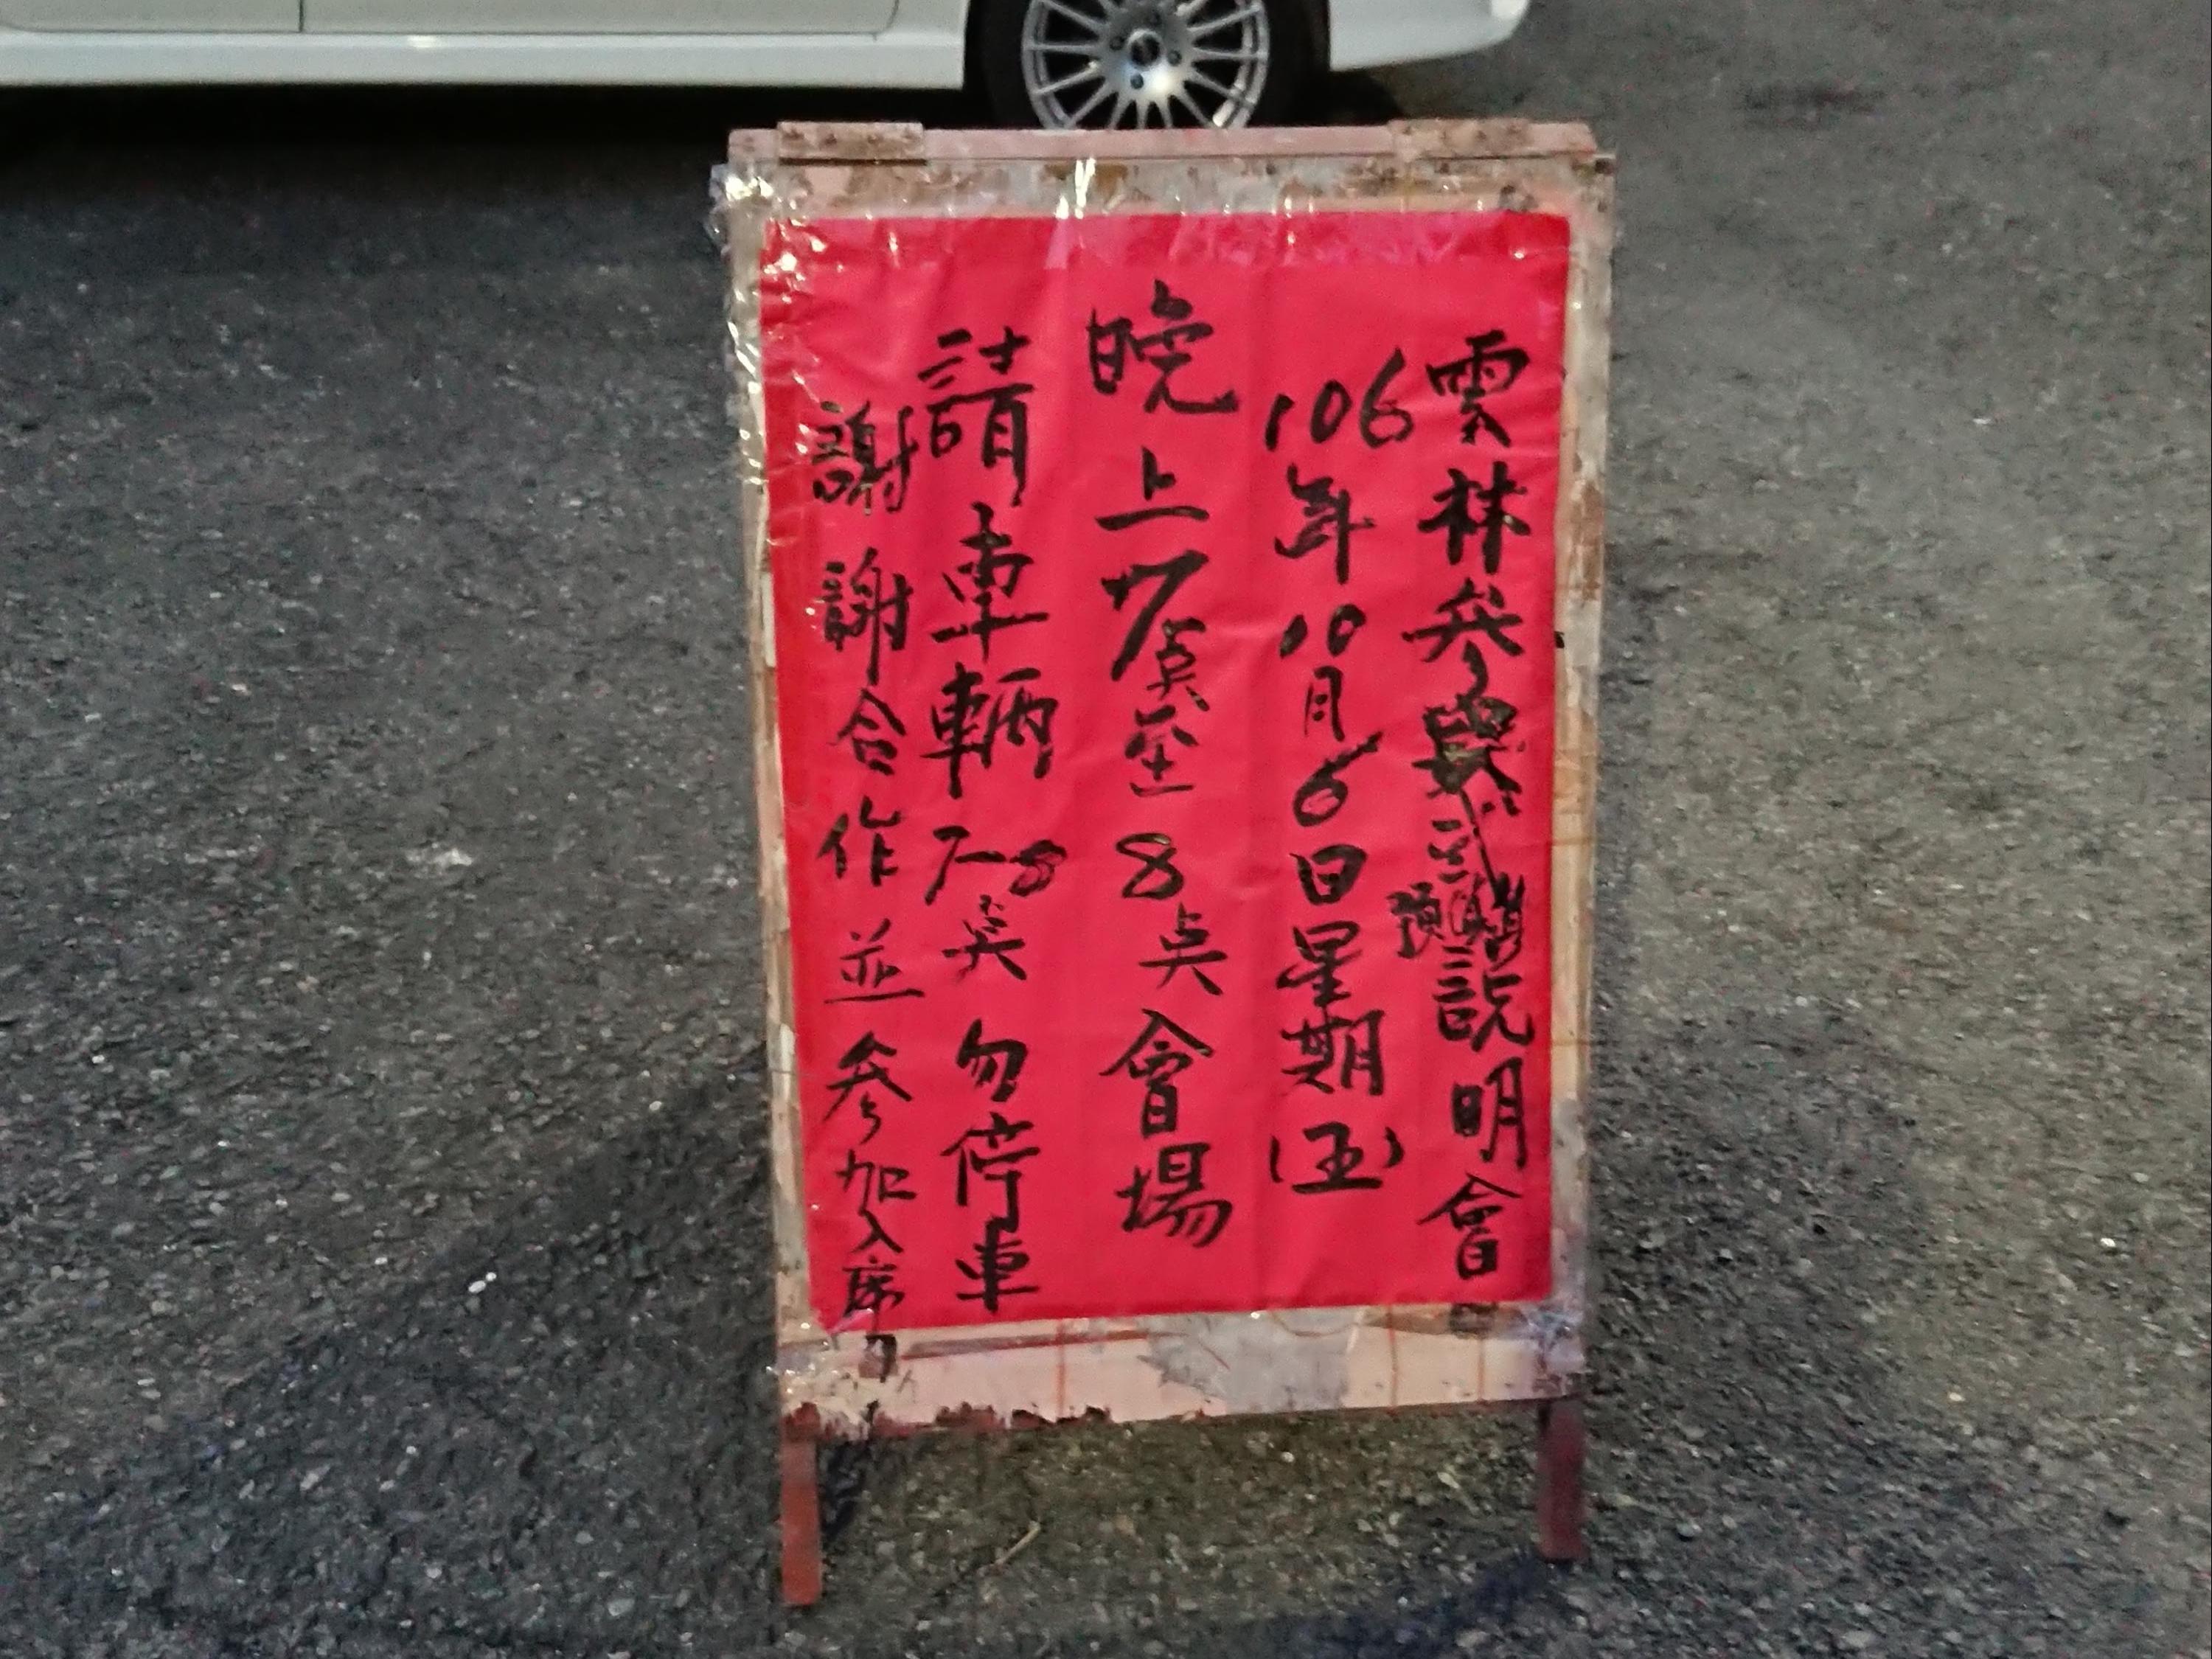 雲林參與式預算說明會
106年10月6日星期(五)
晚上7點至8點會場
請車輛7-8點勿停車
謝謝合作並參加入席